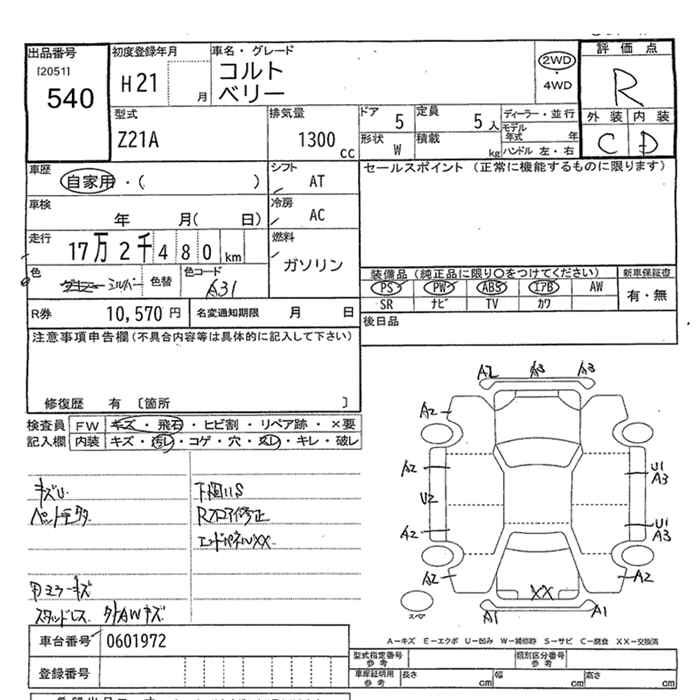 出品番号
[2051]
540
初度登録年月
H21
月
車名・グレード
コルト
ベリー
2WD
・
4WD
評価点
R
外装 内装
C D
型式
Z21A
排気量
1300
cc
ドア
5
定員
5人
形状
W
積載
kg
ディーラー・並行
モデル
年式 年
ハンドル 左・右
車歴
自家用・( )
シフト
AT
セールスポイント (正常に機能するものに限ります)
車検
年 月( 日)
冷房
AC
走行
17万2千480km
燃料
ガソリン
色
シルバー
色替
色コード
A31
装備品(純正品に限り○をつけてください)
PS PW ABS エアB AW
SR ナビ TV カワ
新車保証書
有・無
R券
10,570 円
名変通知期限 月 日
後日品
注意事項申告欄(不具合内容等は具体的に記入して下さい)
修復歴 有 〔箇所 〕
検査員
記入欄
FW キズ・飛石・ヒビ割・リペア跡・×要
内装 キズ・汚レ・コゲ・穴・スレ・キレ・破レ
キズU
下廻りS
Rフロア修正
エンドパネルXX
ミラーキズ
スタッドレス AWキズ
A2 A3 A3
A2
A2
U2
A2
A2
U1
A3
U1
A3
A2
XX
A1 A1
スペア
A-キズ E-エクボ U-凹み W-補修跡 S-サビ C-腐食 XX-交換済
車台番号
0601972
登録番号
型式指定番号
参考
類別区分番号
参考
車庫証明用
参考
長さ cm 幅 cm 高さ cm